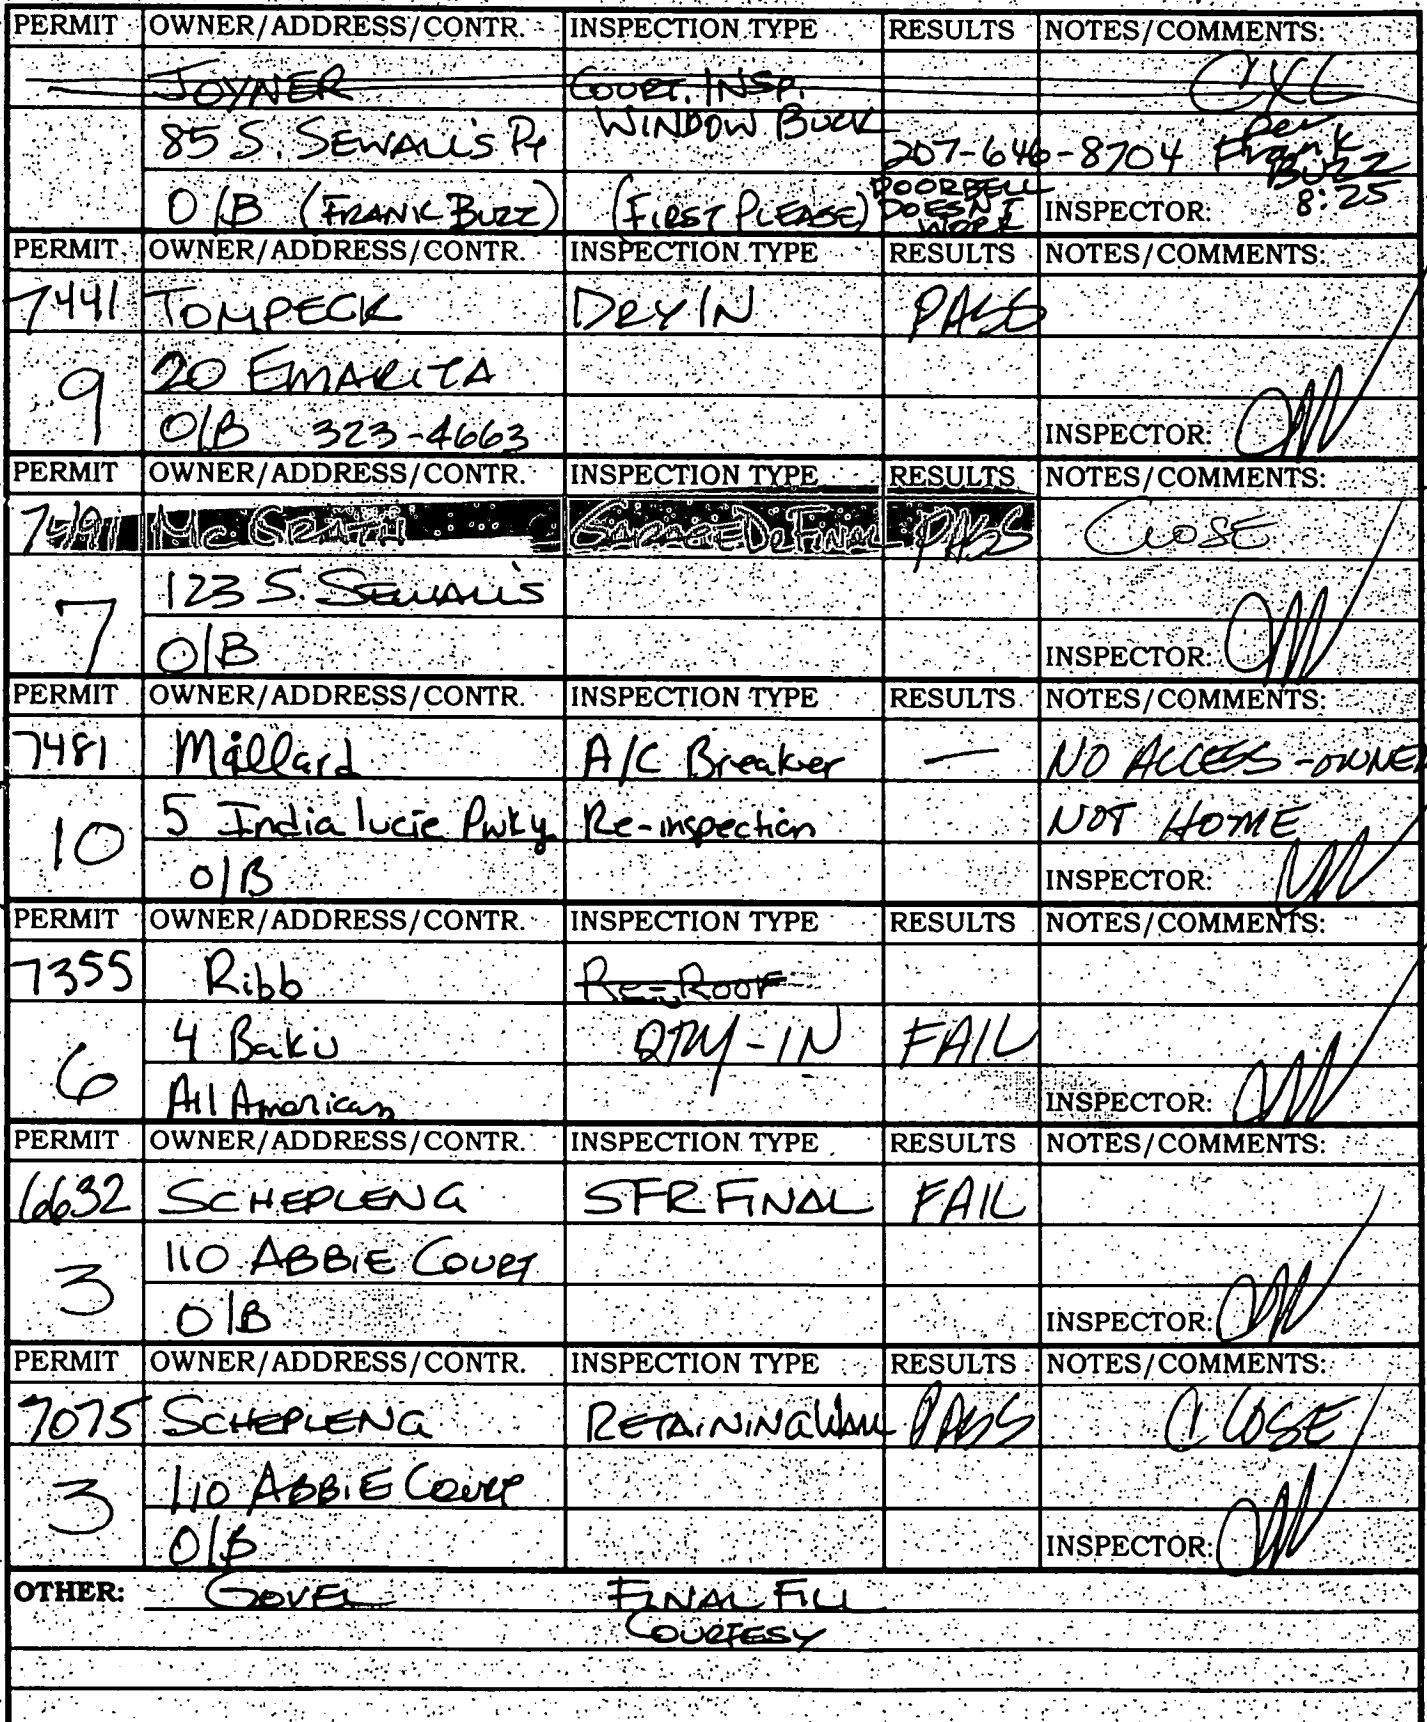 PERMIT OWNER/ADDRESS/CONTR. INSPECTION TYPE RESULTS NOTES/COMMENTS:
JOYNER COURT. INSP. CXL
85 S. SEWALL'S PT WINDOW BUCK 207-646-8704 per Frank Buzz
O/B (FRANK BUZZ) (FIRST PLEASE) DOORBELL DOESN'T WORK INSPECTOR: 8:25
PERMIT OWNER/ADDRESS/CONTR. INSPECTION TYPE RESULTS NOTES/COMMENTS:
7441 TOMPECK DRY IN PASS
9 20 EMARITA
O/B 323-4663 INSPECTOR:
PERMIT OWNER/ADDRESS/CONTR. INSPECTION TYPE RESULTS NOTES/COMMENTS:
7491 McGRATH GARAGE DR FINAL PASS CLOSE
7 123 S. SEWALL'S
O/B INSPECTOR:
PERMIT OWNER/ADDRESS/CONTR. INSPECTION TYPE RESULTS NOTES/COMMENTS:
7481 Millard A/C Breaker — NO ACCESS - OWNER
10 5 Indialucie Pwky Re-inspection NOT HOME
O/B INSPECTOR:
PERMIT OWNER/ADDRESS/CONTR. INSPECTION TYPE RESULTS NOTES/COMMENTS:
7355 Ribb Re-Roof
6 4 Baku DRY-IN FAIL
All American INSPECTOR:
PERMIT OWNER/ADDRESS/CONTR. INSPECTION TYPE RESULTS NOTES/COMMENTS:
6632 SCHEPLENG SFR FINAL FAIL
3 110 ABBIE COURT
O/B INSPECTOR:
PERMIT OWNER/ADDRESS/CONTR. INSPECTION TYPE RESULTS NOTES/COMMENTS:
7075 SCHEPLENG RETAINING WALL PASS CLOSE
3 110 ABBIE COURT
O/B INSPECTOR:
OTHER: GOVEL FINAL FILL
COURTESY